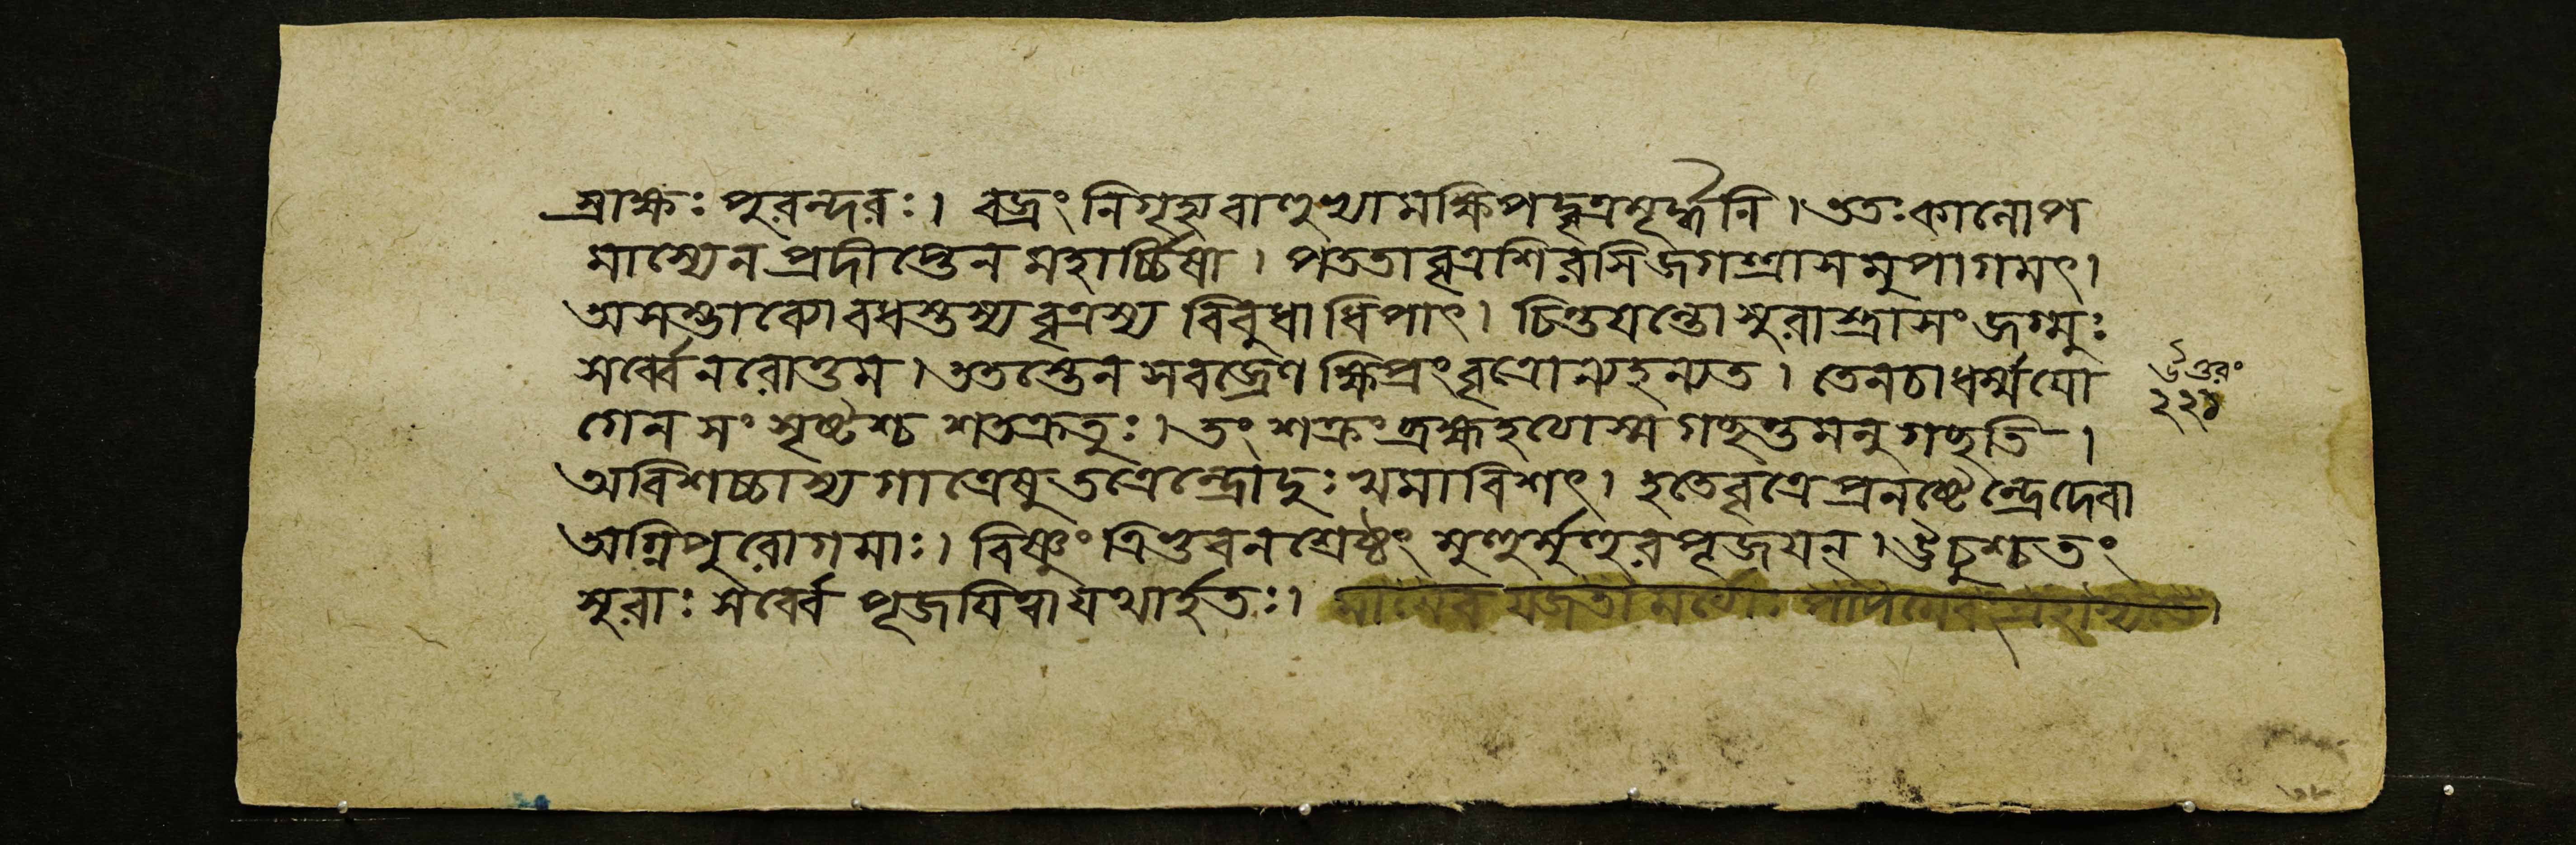 স্রাক্ষঃ পুরন্দরঃ। বজ্রং নিগৃহ্য বাহুভ্যামক্ষিপদ্বৃত্রমূর্দ্ধনি। ততঃ কালোপ
মাস্যেন প্রদীপ্তেন মহার্চ্চিষা। পততা বৃত্রশিরসি জগত্ত্রাসমুপাগমৎ।
অসম্ভাব্যো বধস্তস্য বৃত্রস্য বিবুধাধিপাৎ। চিন্তযন্তো সুরাস্ত্রাসং জগ্মুঃ
সর্ব্বে নরোত্তম। ততস্তেন সবজ্রেণ ক্ষিপ্রং বৃত্রোন্যহন্যত। তেনচাধর্ম্মযো
গেন সংসৃষ্টশ্চ শতক্রতুঃ। তং শক্রং ব্রহ্মহথোস্ম গচ্ছন্তমনুগচ্ছতি।
অবিশচ্চাস্য গাত্রেষু তত্রেন্দ্রো দুঃখমাবিশৎ। হতে বৃত্রে প্রনষ্টেন্দ্রে দেবা
অগ্নিপুরোগমাঃ। বিষ্ণুং ত্রিভুবনশ্রেষ্ঠং মুহুর্মুহুরপূজযন্। ঊচুশ্চ তং
সুরাঃ সর্ব্বে পূজযিত্বা যথার্হতঃ। মামেব যজতা
উত্তরং
২২১